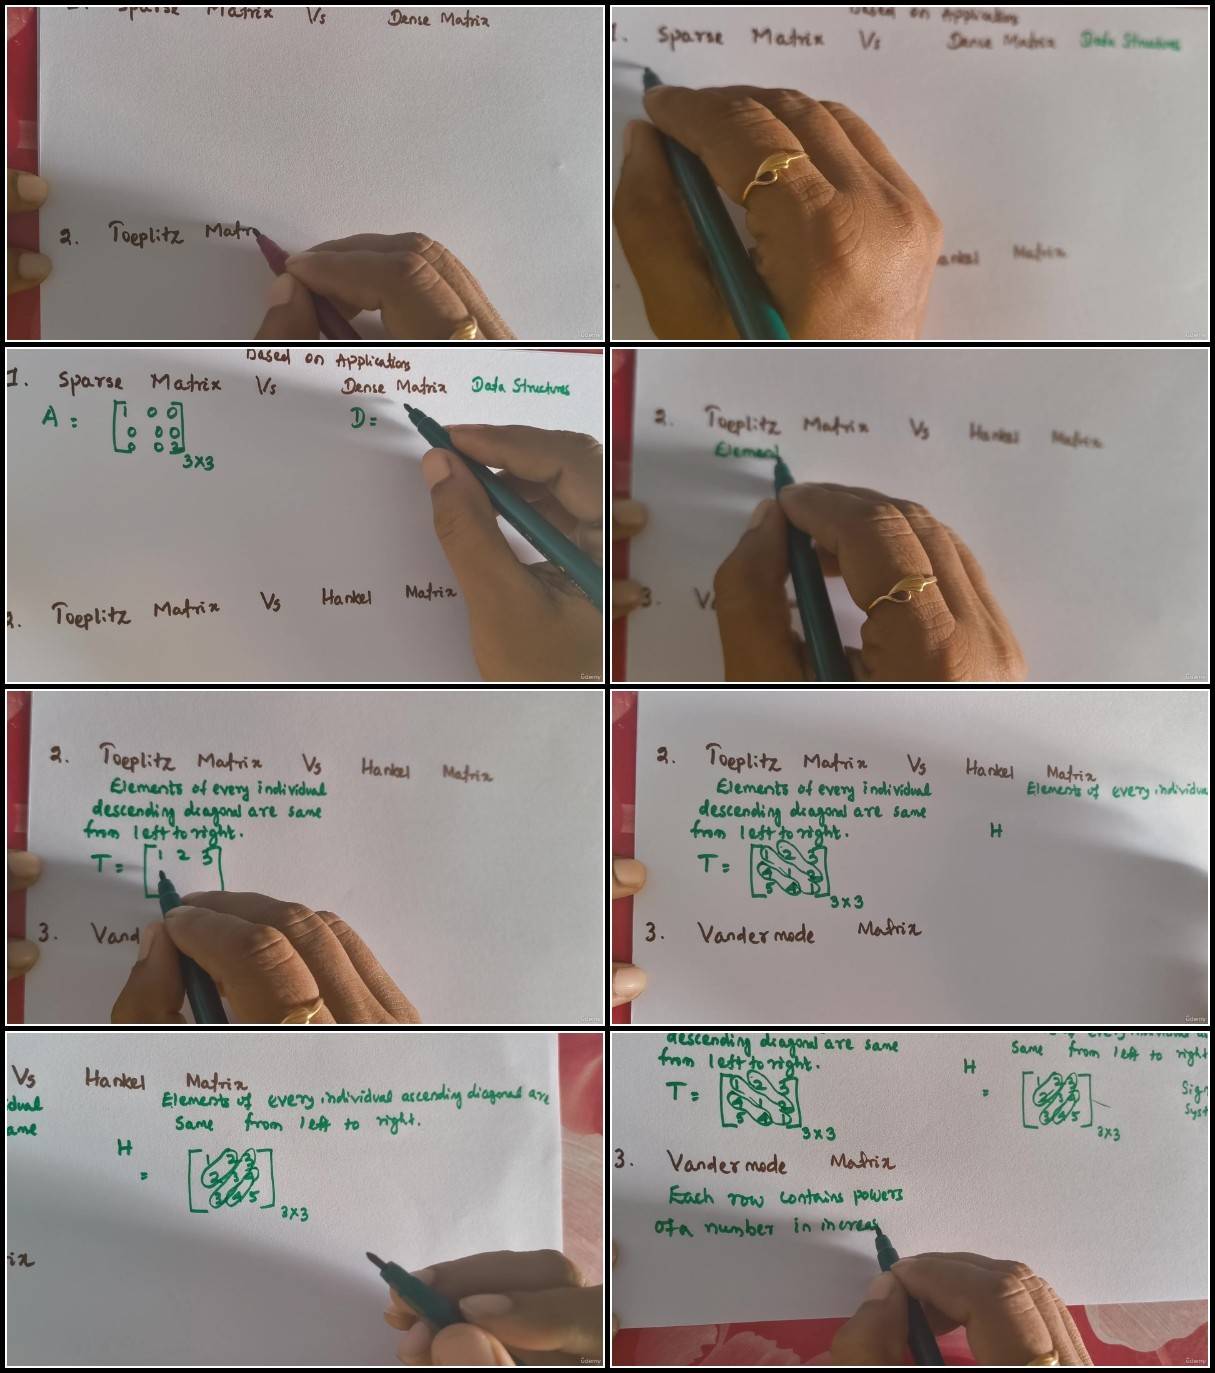 Sparse Matrix Vs Dense Matrix
2. Toeplitz Matr
Udemy
Based on Applications
1. Sparse Matrix Vs Dense Matrix Data Structures
ankel Matrix
Udemy
Based on Applications
1. Sparse Matrix Vs Dense Matrix Data Structures
A = [1 0 0
0 0 0
0 0 2] 3×3
D =
2. Toeplitz Matrix Vs Hankel Matrix
Udemy
2. Toeplitz Matrix Vs Hankel Matrix
Element
3. V
Udemy
2. Toeplitz Matrix Vs Hankel Matrix
Elements of every individual
descending diagonal are same
from left to right.
T = [1 2 3
3. Vand
Udemy
2. Toeplitz Matrix Vs Hankel Matrix
Elements of every individual
Elements of every individua
descending diagonal are same
from left to right.
H
T = [1 2 3
4 1 2
5 4 1] 3×3
3. Vander mode Matrix
Udemy
Vs Hankel Matrix
idual
Elements of every individual ascending diagonal are
ame
Same from left to right.
H
= [1 2 3
2 3 4
3 4 5] 3×3
ix
Udemy
descending diagonal are same
from left to right.
Same from left to right
H
T = [1 2 3
4 1 2
5 4 1] 3×3
= [1 2 3
2 3 4
3 4 5] 3×3
Sig
Syst
3. Vander mode Matrix
Each row contains powers
of a number in increas
Udemy